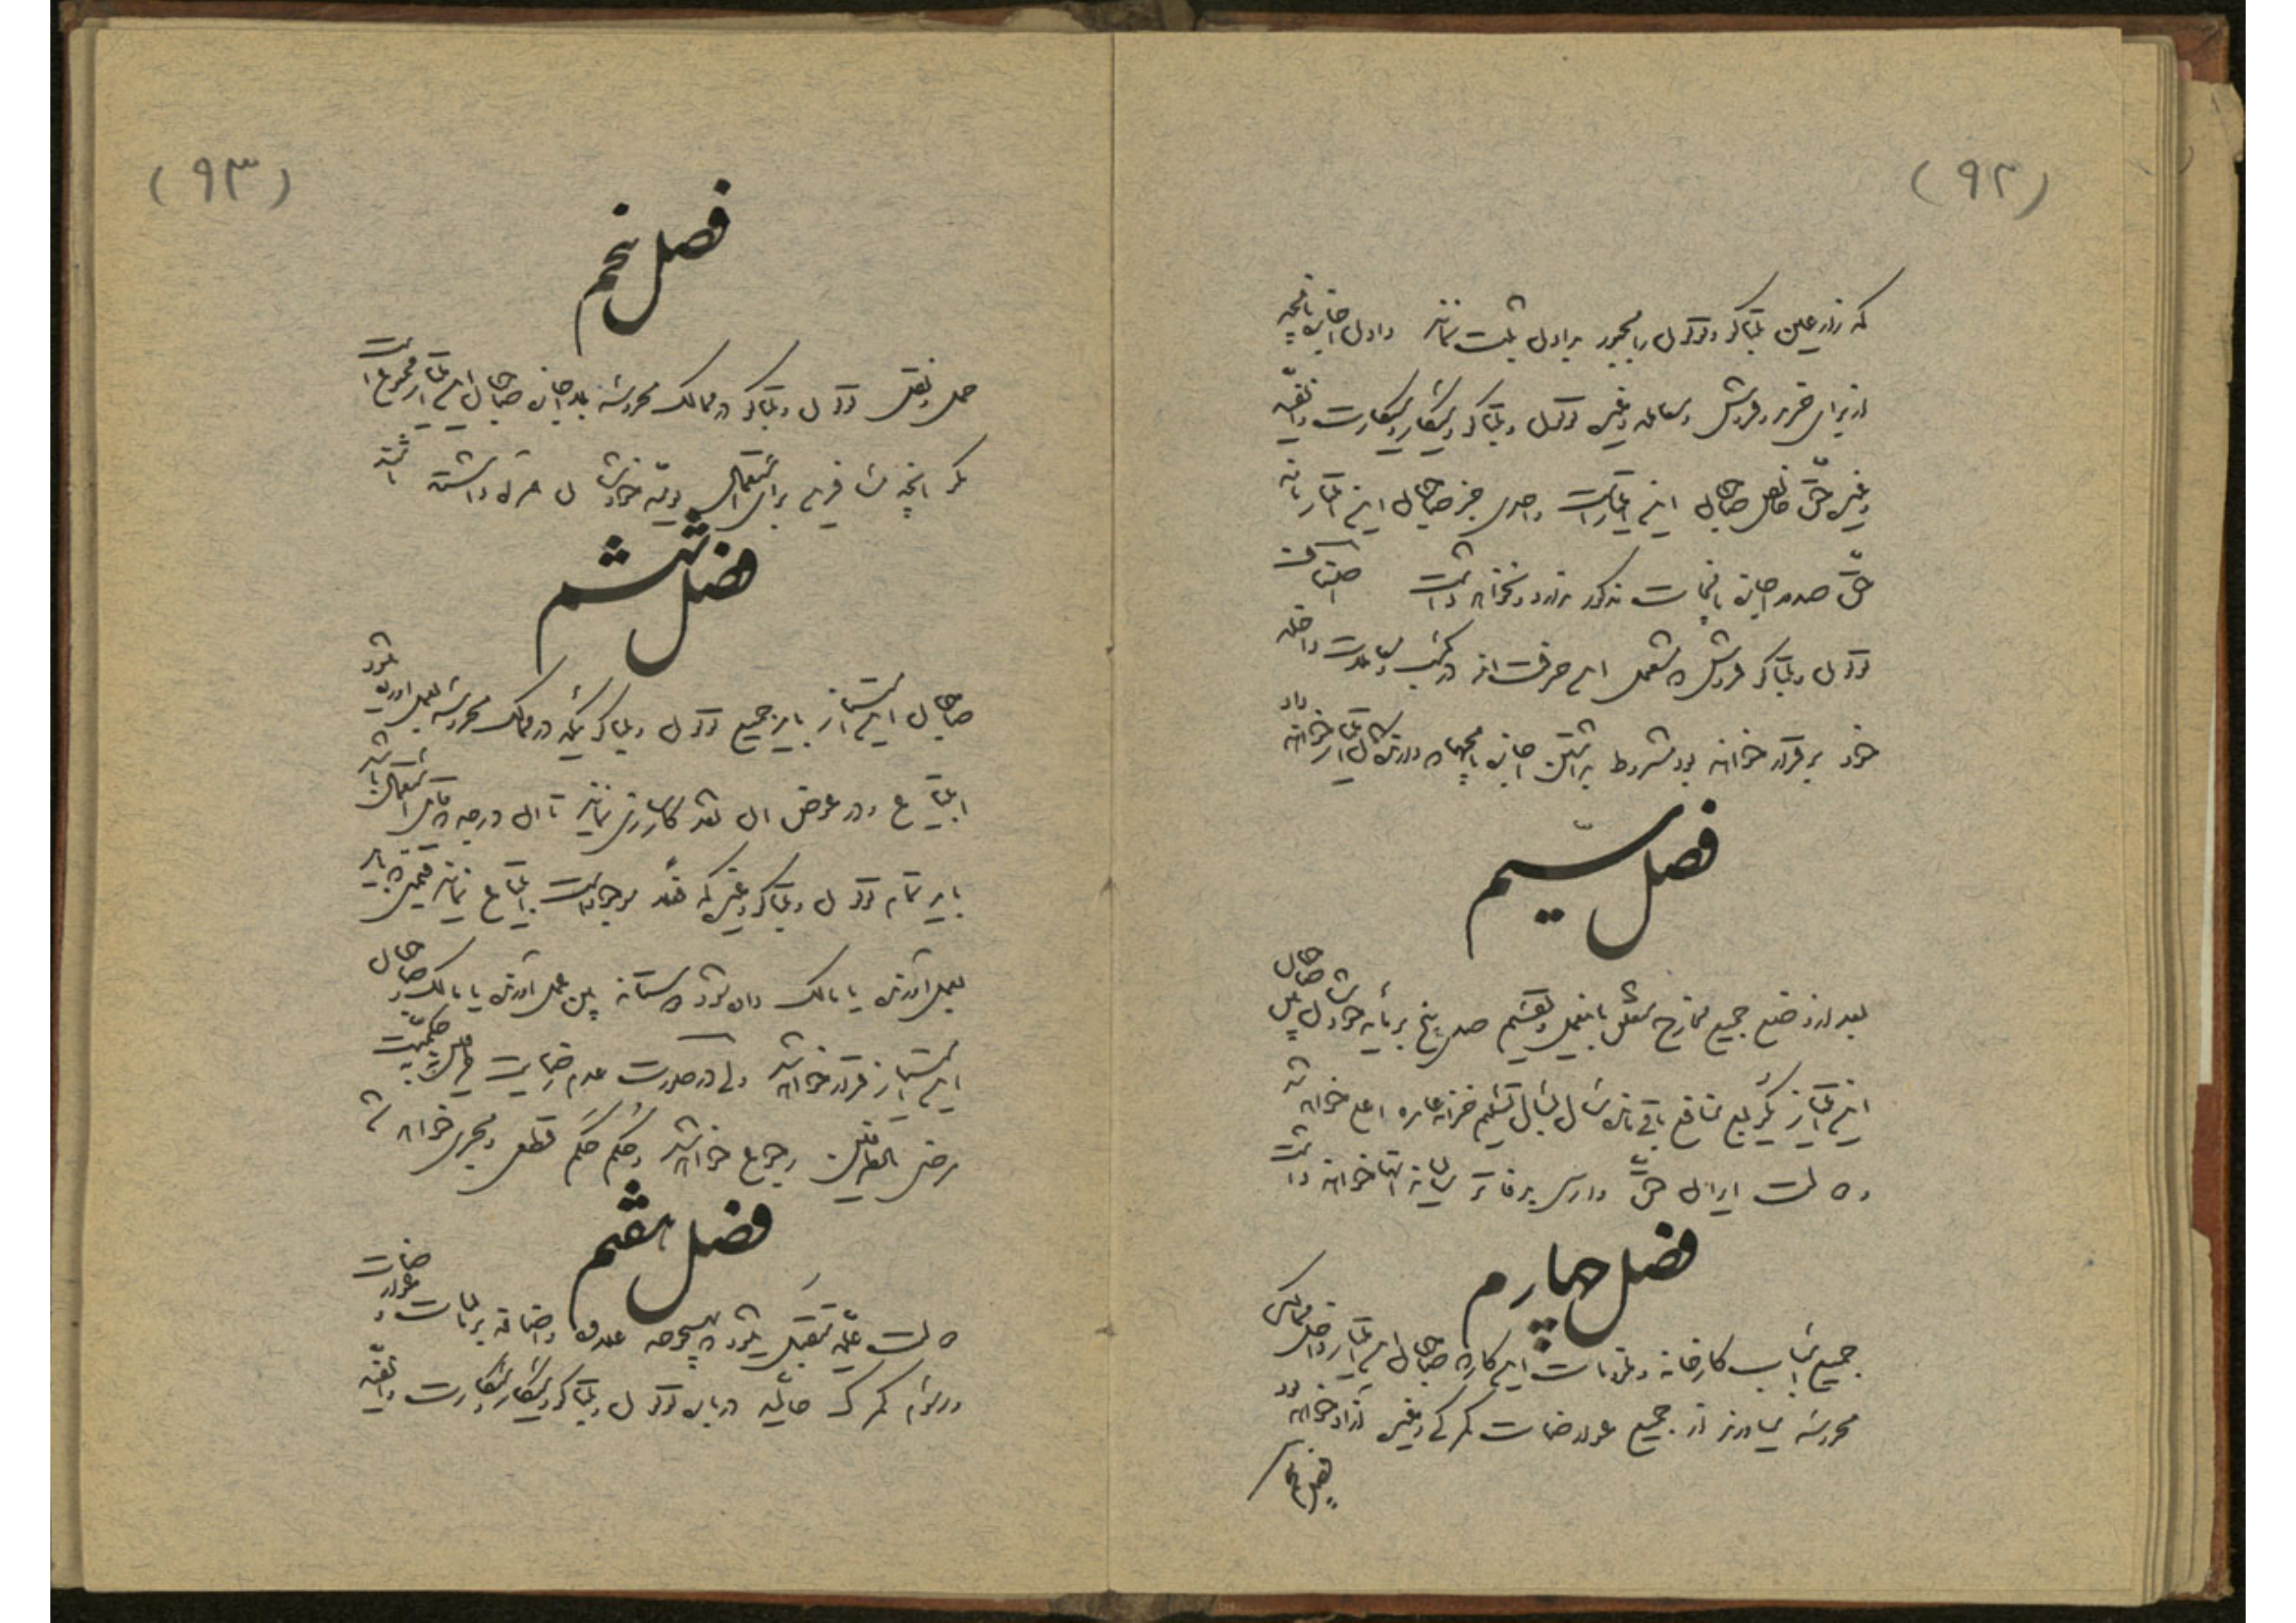 (۹۲)
که زارعین تنباکو و توتون را مجبور بر اول ثبت نمایند و اول اجازه نامجه
از برای خرید و فروش و معامله و غیره توتون و تنباکو و سیگار و سیگارت و انفیه
و غیره حق خالص صاحبان این امتیاز است و احدی جز صاحبان این امتیاز نامه
حق صدور اجازه نامجات مذکور ندارد و نخواهد داشت اصناف
توتون و تنباکو فروش که مشغول این حرفت اند در کسب و معاملات داخله
خود برقرار خواهند بود مشروط بداشتن اجازه نامچهها که دارنده این امتیاز خواهند داد
فصل سیّم
بعد از وضع جمیع مخارج متعلق باینعمل و تقسیم صدی پنج بر مایه خودشان صاحبان
این امتیاز یک ربع منافع باقی مانده سال بسال تسلیم خزانه عامره اعلی خواهند
دولت ایران حق وارسی بر دفاتر سالیانه آنها خواهند داشت
فصل چهارم
جمیع اسباب کارخانه و ملزومات این کار که صاحبان این امتیاز داخل ممالک
محروسه میاورند از جمیع عوارضات گمرکی و غیره آزاد خواهد بود
فصل پنجم
(۹۳)
فصل پنجم
حمل و نقل توتون و تنباکو در ممالک محروسه بلا اجازه صاحبان این امتیاز ممنوع است
مگر آنچه مسافرین برای استعمال یومیه خودشان همراه داشته باشند
فصل ششم
صاحبان این امتیاز باید جمیع توتون و تنباکوئیکه در ممالک محروسه بعمل آورده میشود
ابتیاع و در عوض آن نقد کارسازی نمایند تا آن درجه که قابل استعمال باشد
باید تمام توتون و تنباکو و غیره که فعلا موجود است ابتیاع نمایند قیمتی که باید
بعمل آورنده یا مالک داده شود دوستانه بین عمل آورنده یا مالک و صاحبان
این امتیاز قرار خواهد شد ولی در صورت عدم رضایت طرفین به حکمیت
مرضی الطرفین رجوع خواهد شد و حکم حکم قطعی و مجری خواهد شد
فصل هفتم
دولت علیه متقبل میشود که بهیچوجه علاوه و اضافه بر مالیات و عوارضات
و رسوم گمرک حالیه درباره توتون و تنباکو و سیگار و سیگارت و انفیه